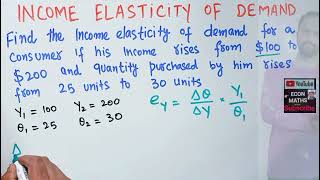 INCOME ELASTICITY OF DEMAND
Find the Income elasticity of demand for a
consumer if his Income rises from $100 to
$200 and quantity purchased by him rises
from 25 units to 30 units
Y₁ = 100 Y₂ = 200
θ₁ = 25 θ₂ = 30
eY = Δθ/ΔY × Y₁/θ₁
Δ
YouTube
ECON
MATHS
Subscribe